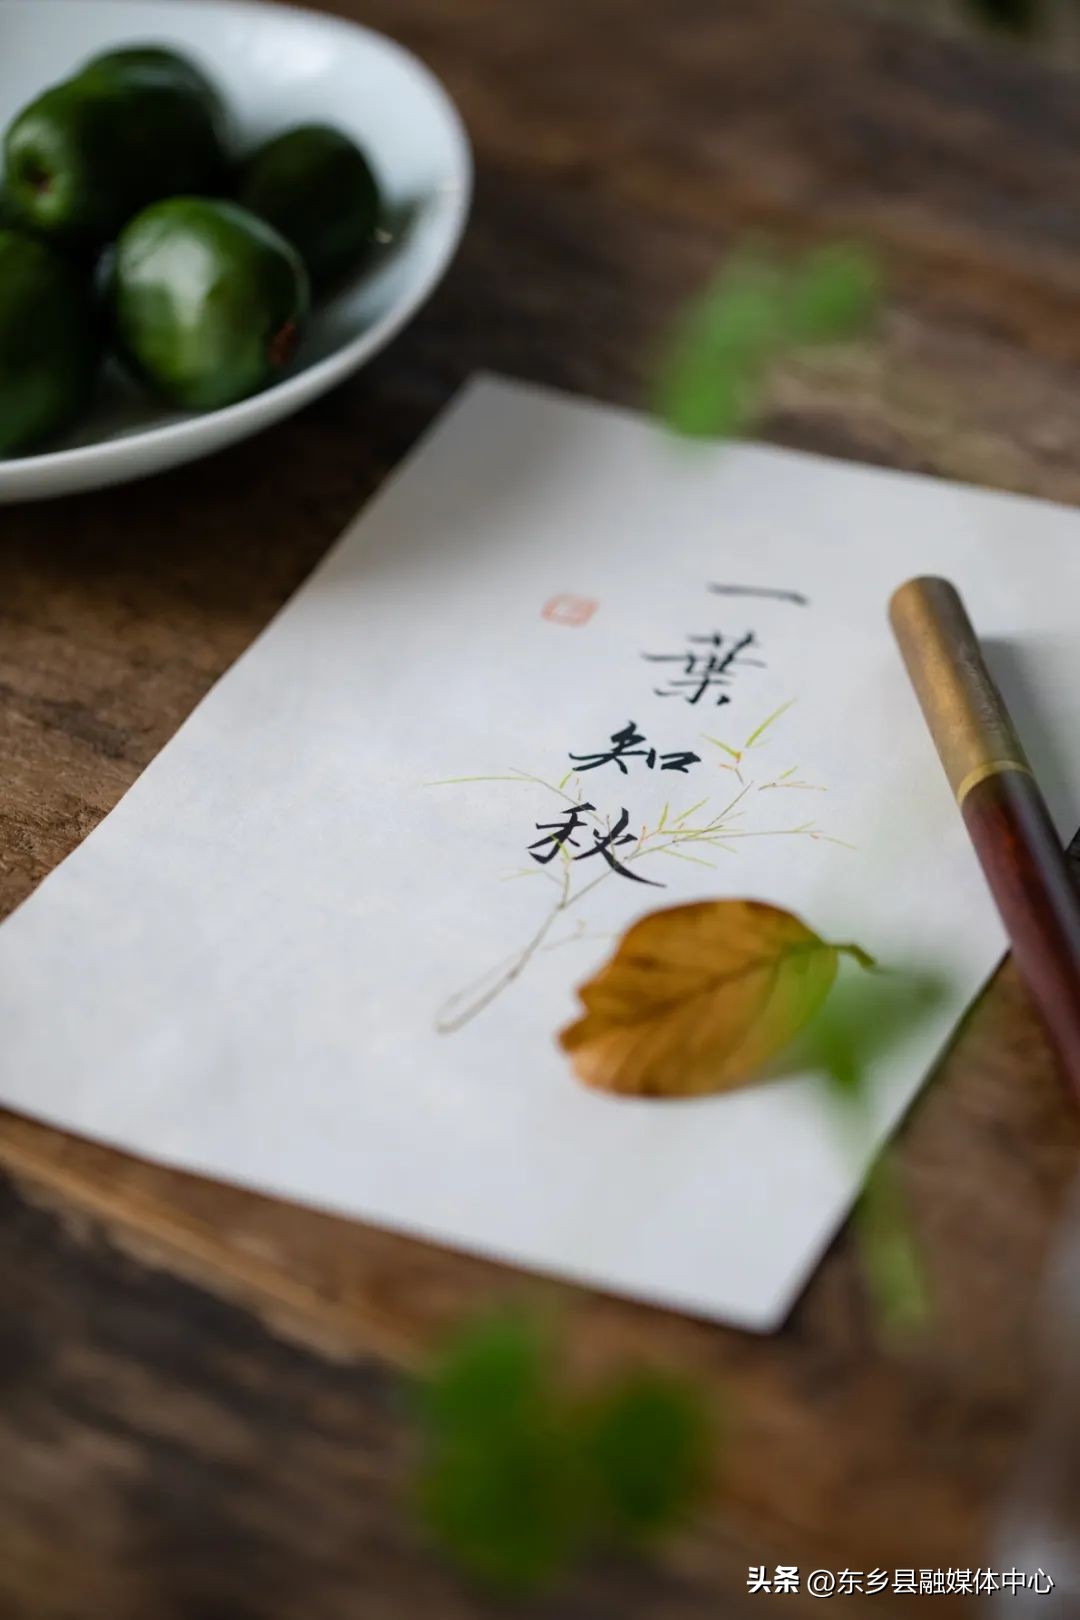 一葉知秋
头条 @东乡县融媒体中心